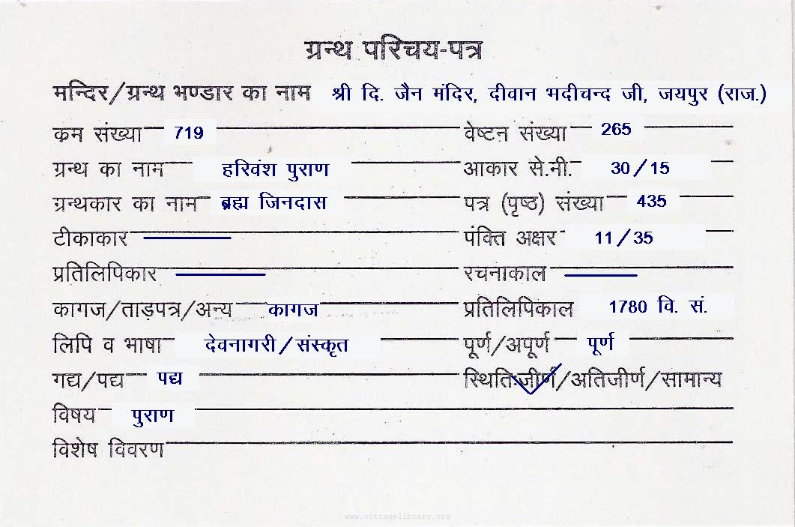 ग्रन्थ परिचय-पत्र
मन्दिर/ग्रन्थ भण्डार का नाम श्री दि. जैन मंदिर, दीवान भदीचन्द जी, जयपुर (राज.)
कम संख्या 719 वेष्टन संख्या 265
ग्रन्थ का नाम हरिवंश पुराण आकार से.मी. 30/15
ग्रन्थकार का नाम ब्रह्म जिनदास पत्र (पृष्ठ) संख्या 435
टीकाकार पंक्ति अक्षर 11/35
प्रतिलिपिकार रचनाकाल
कागज/ताड़पत्र/अन्य कागज प्रतिलिपिकाल 1780 वि. सं.
लिपि व भाषा देवनागरी/संस्कृत पूर्ण/अपूर्ण पूर्ण
गद्य/पद्य पद्य स्थितिःजीर्ण/अतिजीर्ण/सामान्य
विषय पुराण
विशेष विवरण
www.vitragelibrary.com